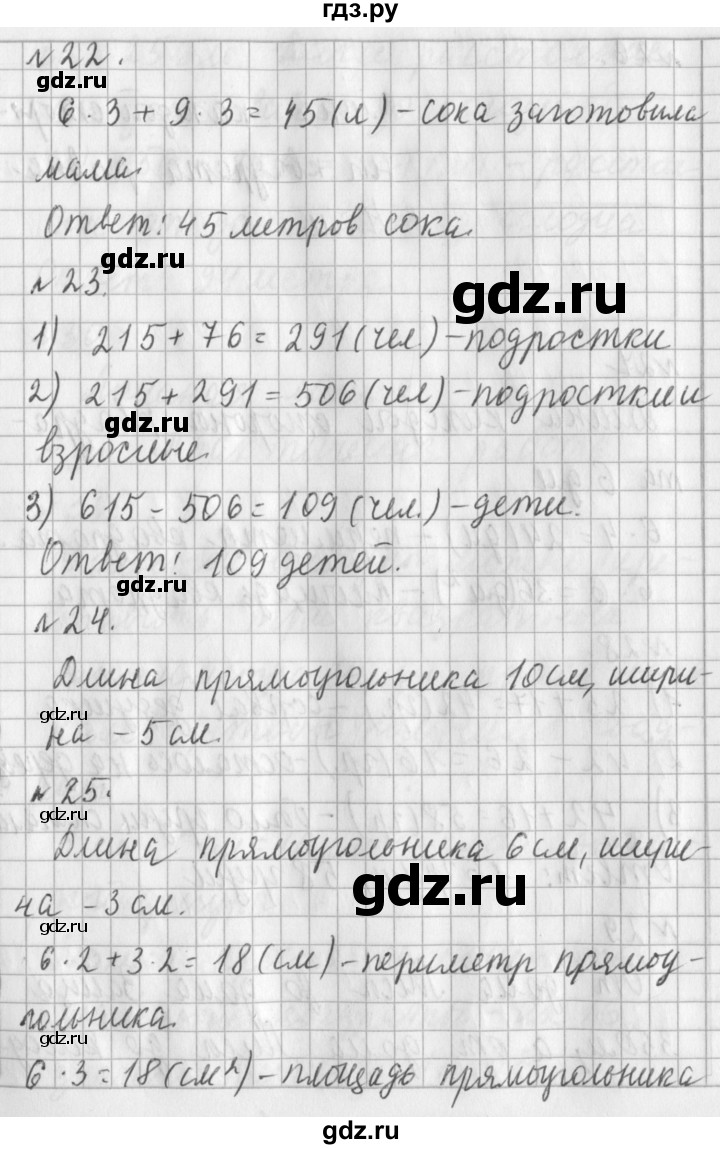 гдз.ру
№22.
6·3+9·3=45(л)-сока заготовила
мама.
Ответ: 45 метров сока.
gdz.ru
№23.
gdz.ru
1) 215+76=291(чел.)-подростки
2) 215+291=506(чел)-подростки и
gdz.ru
взрослые.
3) 615-506=109(чел.)-дети.
Ответ: 109 детей.
gdz.ru
№24.
Длина прямоугольника 10см, шири-
gdz.ru
на - 5 см.
№25.
gdz.ru
Длина прямоугольника 6см, шири-
gdz.ru
на - 3 см.
gdz.ru
6·2+3·2=18(см)-периметр прямоу-
гольника.
gdz.ru
6·3=18(см²)-площадь прямоугольника
gdz.ru
gdz.ru